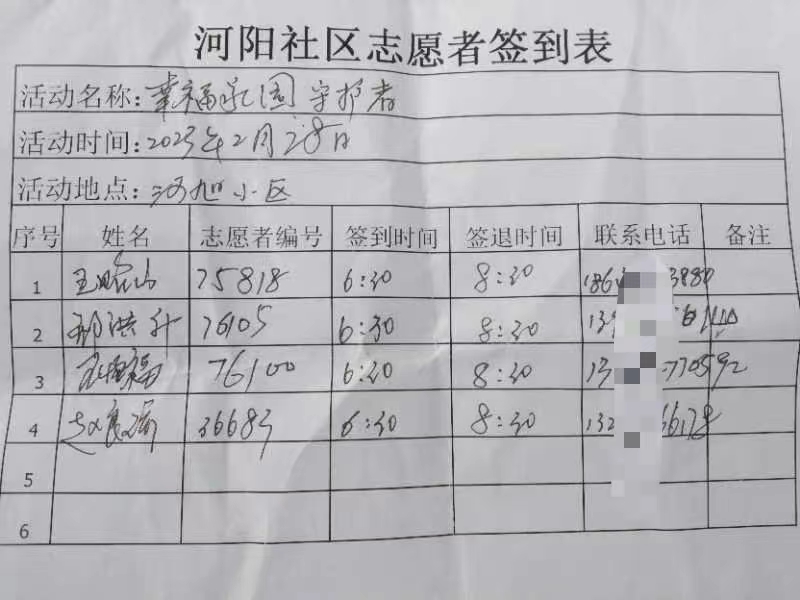 河阳社区志愿者签到表
活动名称:幸福家园守护者
活动时间:2023年2月28日
活动地点:河旭小区
序号 姓名 志愿者编号 签到时间 签退时间 联系电话 备注
1 75818 6:30 8:30 186 3880
2 邢洪升 76105 6:30 8:30
3 福 76100 6:30 8:30 770592
4 赵良瑞 36683 6:30 8:30 132 66178
5
6